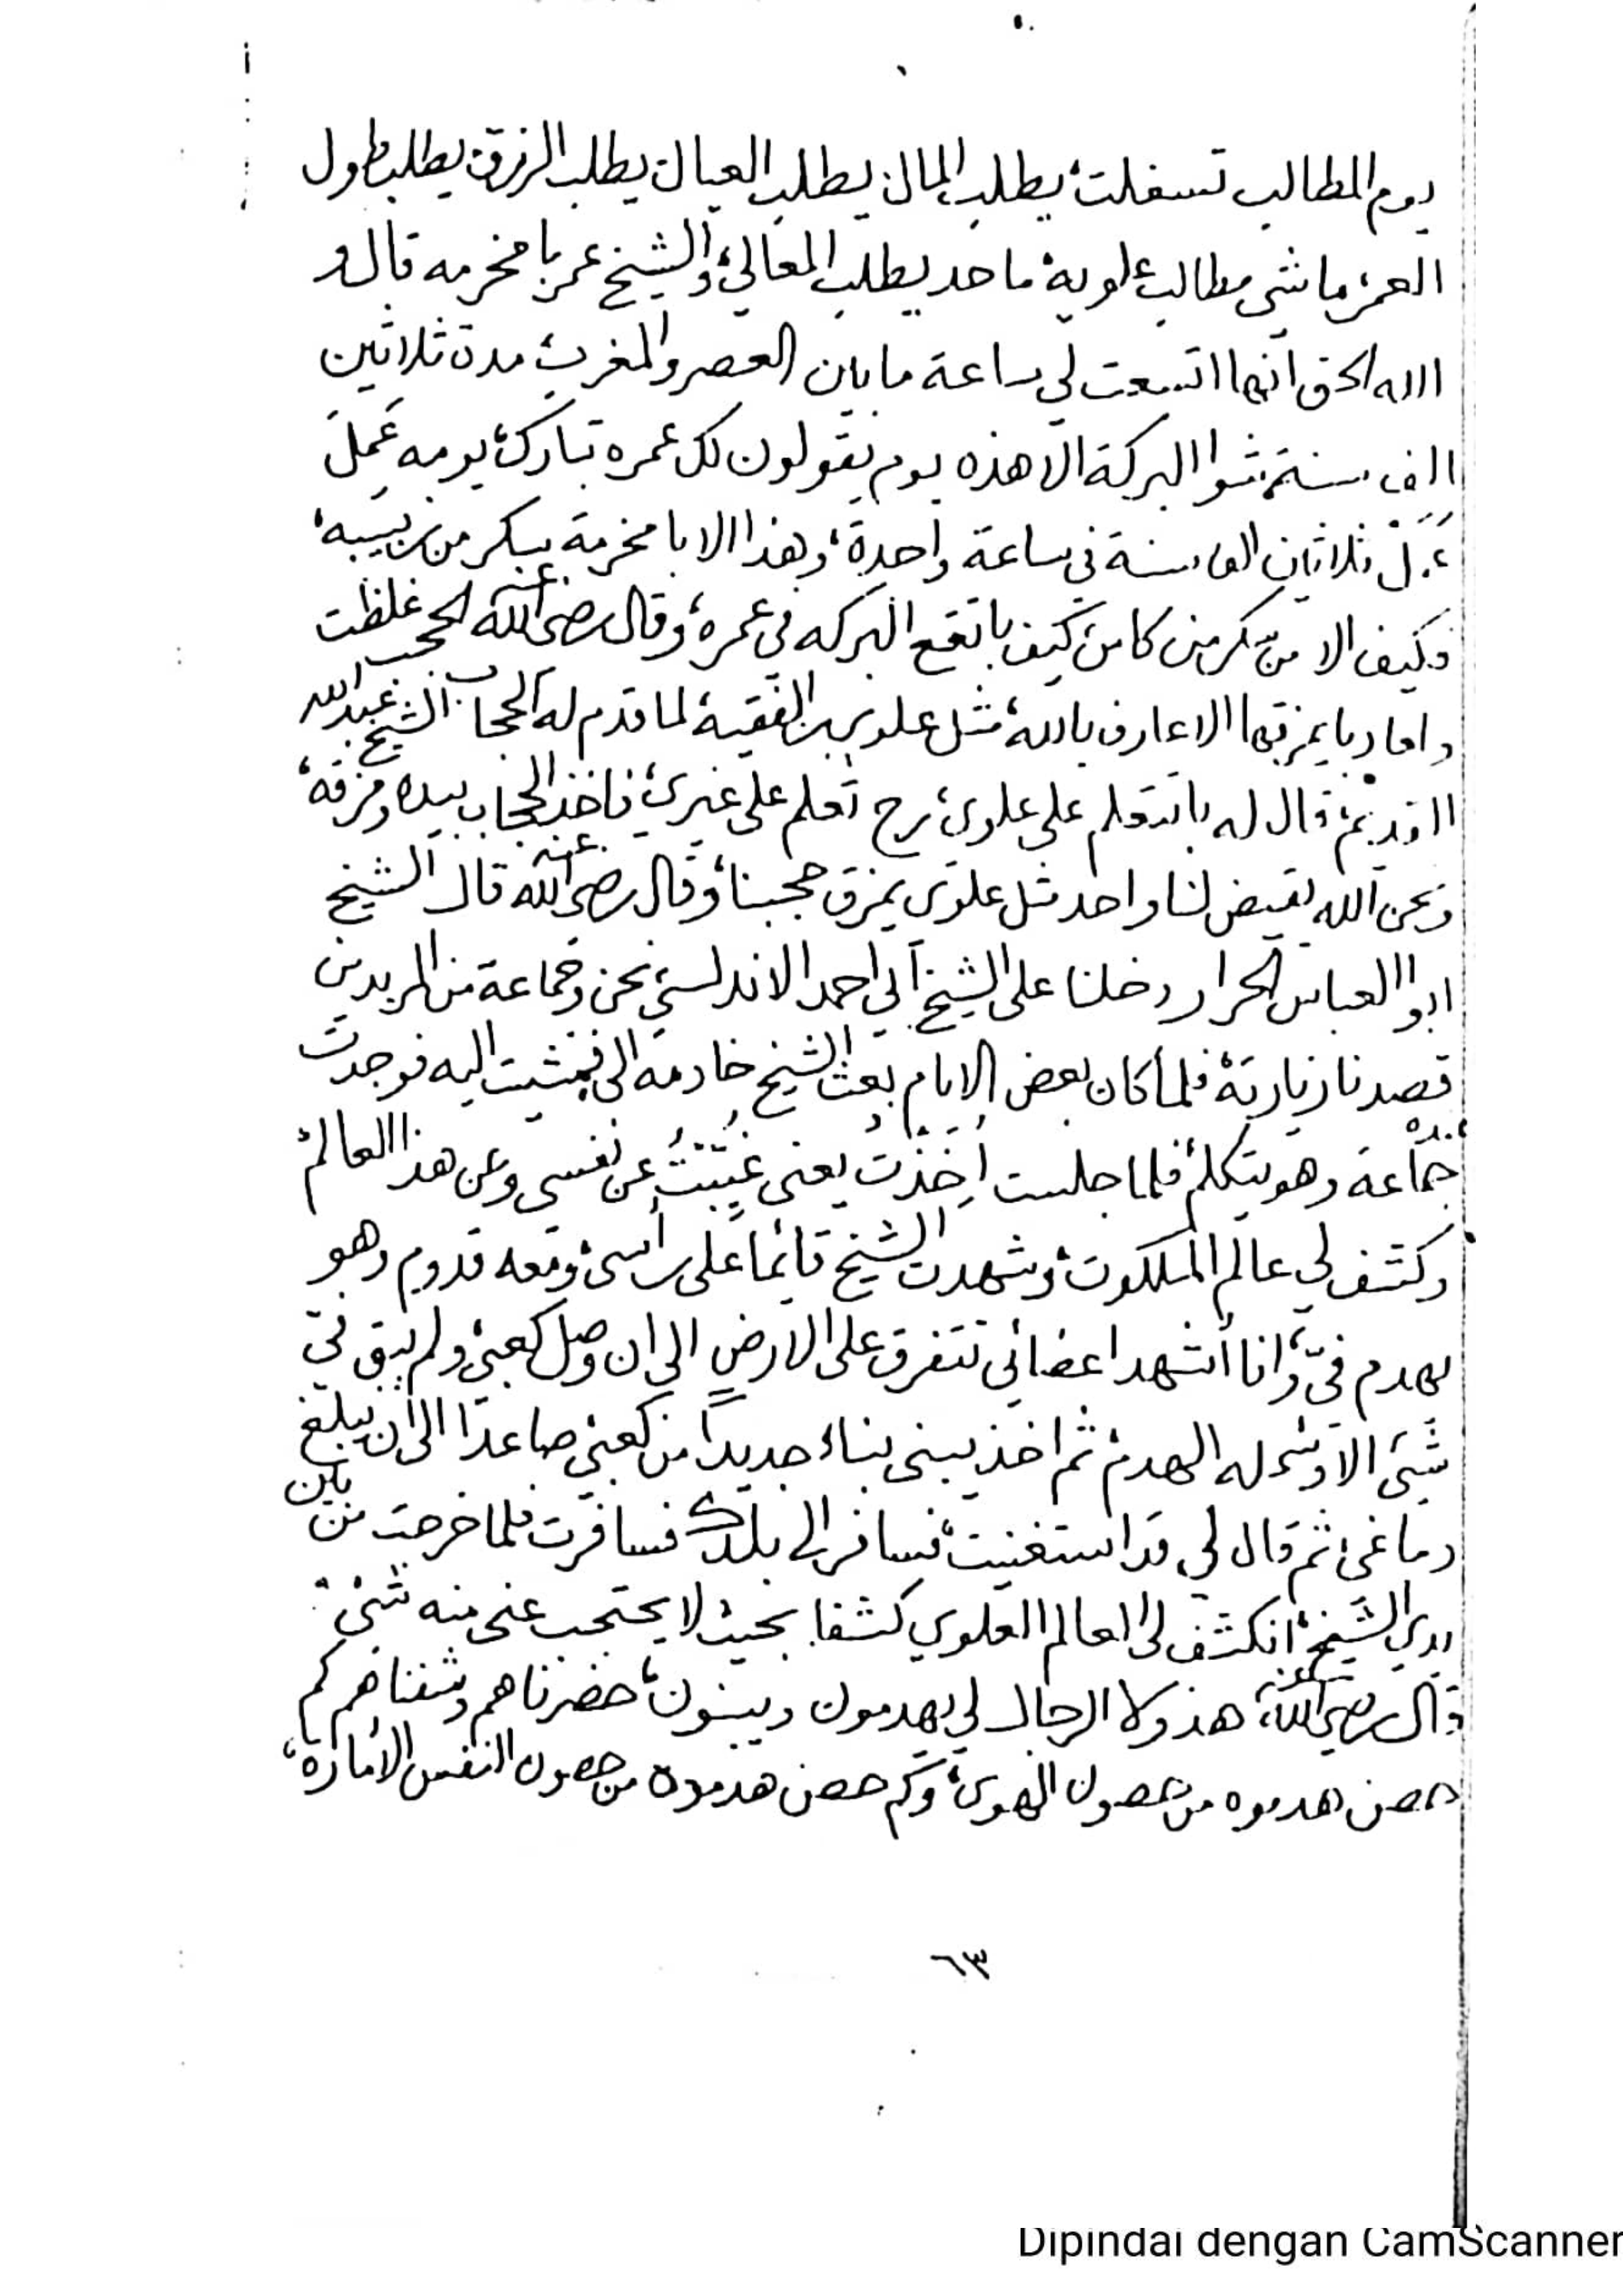 يوم المطالب تسفلت، يطلب المال يطلب العيال يطلب الرزق يطلب طول
العمر ما شي مطالب علوية، ما حد يطلب المعالي، والشيخ عمر بامخرمه قال و
الله الحق انها اتسعت لي ساعة ما بين العصر والمغرب، مدة ثلاثين
الف سنة، شوا البركة الا هذه يوم يقولون لك عمره تبارك، يومه عمل
عمل ثلاثين الف سنة في ساعة واحدة، وهذا الا بامخرمة يسكر من زبيبه،
فكيف الا من سكر من كاس كيف باتقع البركه في عمره، وقال رضي الله عنه الحجب غلظت
وعاد ما يمزقها الا عارف بالله، مثل علوي بن الفقية، لما قدم له الحجاب الشيخ عبدالله
القديم، قال له باتتعلم على علوي، رح تعلم على غيري، فاخذ الحجاب بيده ومزقه،
ونحن الله يقيض لنا واحد مثل علوي يمزق حجبنا، وقال رضي الله عنه قال الشيخ
ابوا العباس الحرار دخلنا على الشيخ أبي احمد الاندلسي، نحن وجماعة من المريدين
قصدنا زيارته، فلما كان بعض الايام بعث الشيخ خادمه الي فمشيت اليه فوجدت
عنده
جماعة وهو يتكلم، فلما جلست أُخِذْتُ يعني غُيِّبْتُ عن نفسي وعن هذا العالم،
وكشف لي عالم الملكوت، وشهدت الشيخ قائما على رأسي، ومعه قدوم وهو
يهدم فيّ، وانا أشهد اعضائي تتفرق على الارض الى ان وصل كعبي، ولم يبق فيّ
شيء الا وشمله الهدم، ثم اخذ يبني بناء جديداً من كعبي صاعدا الى أن يبلغ
دماغي، ثم قال لي قد استغنيت، فسافر الى بلدك فسافرت فلما خرجت من بين
يدي الشيخ، انكشف لي العالم العلوي كشفا بحيث لا يحتجب عني منه شيء،
قال رضي الله عنه، هذولا الرجال لي يهدمون ويبنون، حضرناهم وشفناهم كم
حصن هدموه من حصون الهوى، وكم حصن هدموه من حصون النفس الأمارة،
٦٣
Dipindai dengan CamScanner